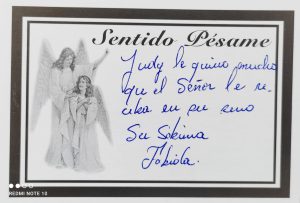 Sentido Pésame
Judy le quiero mucho
que el Señor le re-
ciba en su seno
Su Sobrina
Fabiola.
REDMI NOTE 10